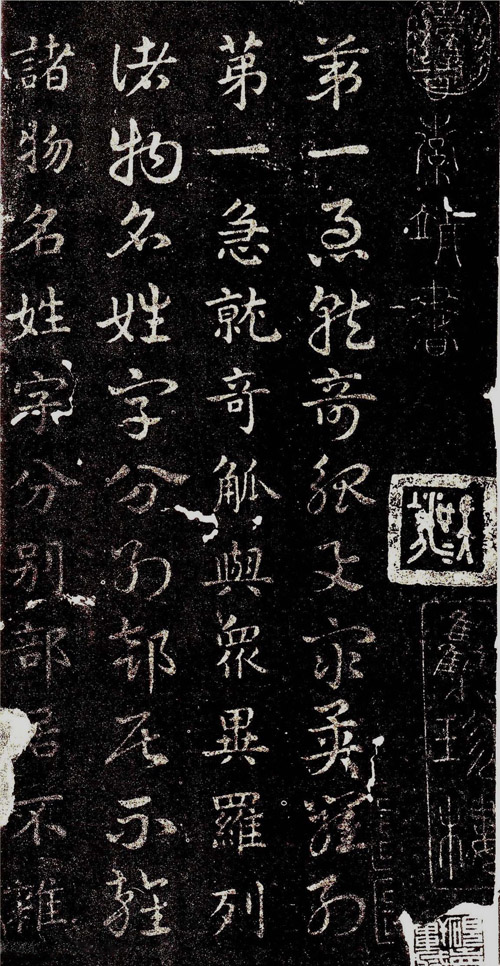 索靖書
苐一急就奇觚與衆異羅列
苐一急就奇觚與衆異羅列
諸物名姓字分別部居不雜
諸物名姓字分別部居不雜